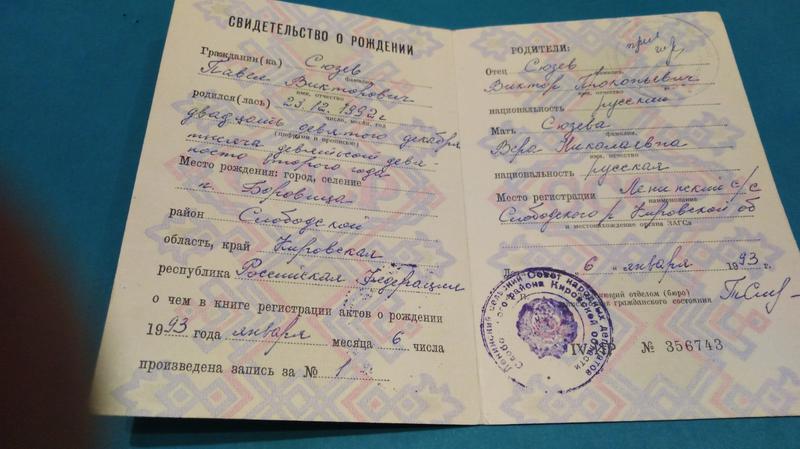 СВИДЕТЕЛЬСТВО О РОЖДЕНИИ
Гражданин(ка) Сюзев
фамилия
Павел Викторович
имя, отчество
родился(лась) 29.12.1992г
число, месяц, год
двадцать девятого декабря
(цифрами и прописью)
тысяча девятьсот девя-
носто второго года
Место рождения: город, селение
п. Боровица
район Слободской
область, край Кировская
республика Российская Федерация
о чем в книге регистрации актов о рождении
1993 года января месяца 6 числа
произведена запись за № 1
РОДИТЕЛИ:
Отец Сюзев
фамилия
Виктор Прокопьевич
имя, отчество
национальность русский
Мать Сюзева
фамилия,
Вера Николаевна
имя, отчество
национальность русская
Место регистрации Ленинский с/с
наименование
Слободского р Кировской об
и местонахождение органа ЗАГСа
6 " января 1993 г.
отделом (бюро)
гражданского состояния
№ 356743